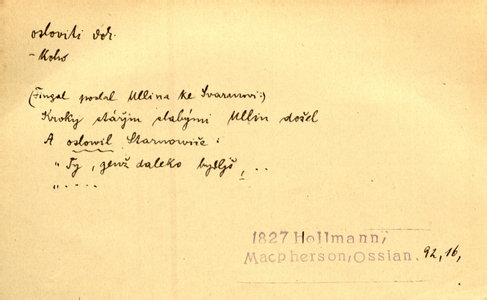 osloviti dok.
- koho
(Fingal poslal Ullina ke Svaranovi:)
Kroky stářím slabými Ullin došel
A oslowil Starnowiče:
„Ty, genž daleko bydlýš, ..
„ . . . .
1827 Hollmann,
Macpherson, Ossian. 92, 16,